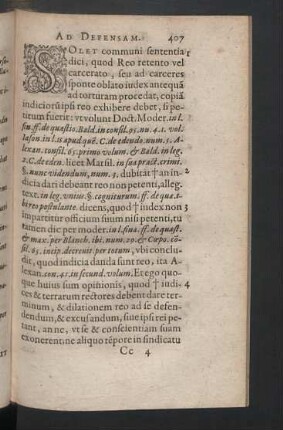 AD DEFENSAM. 407
SOLET communi sententia 1
dici, quod Reo retento vel
carcerato, seu ad carceres
sponte oblato iudex antequã
ad torturam procedat, copiã
indiciorũ ipsi reo exhibere debet, si pe-
titum fuerit: vt volunt Doct. Moder. in l.
fin. ff. de quæstio. Bald. in consil. 95. nu. 4. 1. vol.
Iason. in l. is apud quẽ. C. de edendo. num. 5. A-
lexan. consil. 65. primo volum. & Bald. in leg.
2. C. de eden. licet Marsil. in sua pract. crimi.
§. nunc videndum, num. 4. dubitat † an in- 2
dicia dari debeant reo non petenti, alleg.
text. in leg. vnius. §. cogniturum. ff. de quæ.
reo postulante. dicens, quod † iudex non 3
impartitur officium suum nisi petenti, tu
tamen dic per moder. in l. fina. ff. de quæst.
& max. per Blanch. ibi. num. 20. & Cupo. cõ-
sil. 65. incip. decreuit. per totum, vbi conclu-
dit, quod indicia danda sunt reo, ita A-
lexan. con. 41. in secund. volum. Et ego quo-
que huius sum opinionis, quod † iudi- 4
ces & terrarum rectores debent dare ter-
minum, & dilationem reo ad se defen-
dendum, & excusandum, siue ipsi rei pe-
tant, an ne, vt se & conscientiam suam
exonerent ne aliquo tẽpore in sindicatu
Cc 4